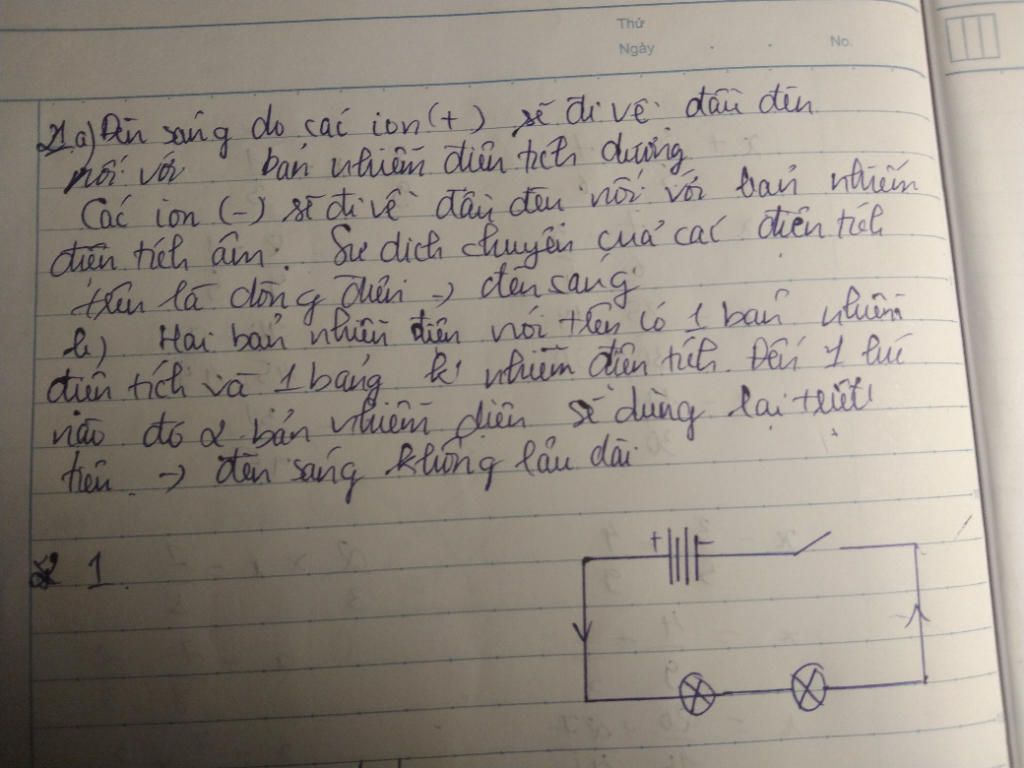 Thứ
Ngày . . No.
21.a) Đèn sáng do các ion (+) sẽ đi về đầu đèn
nối với bản nhiễm điện tích dương
Các ion (-) sẽ đi về đầu đèn nối với bản nhiễm
điện tích âm. Sự dịch chuyển của các điện tích
trên là dòng điện → đèn sáng
b) Hai bản nhiễm điện nói trên có 1 bản nhiễm
điện tích và 1 bảng k nhiễm điện tích. Đến 1 lúc
nào đó 2 bản nhiễm điện sẽ dừng lại
→ đèn sáng không lâu dài
1.
+ -